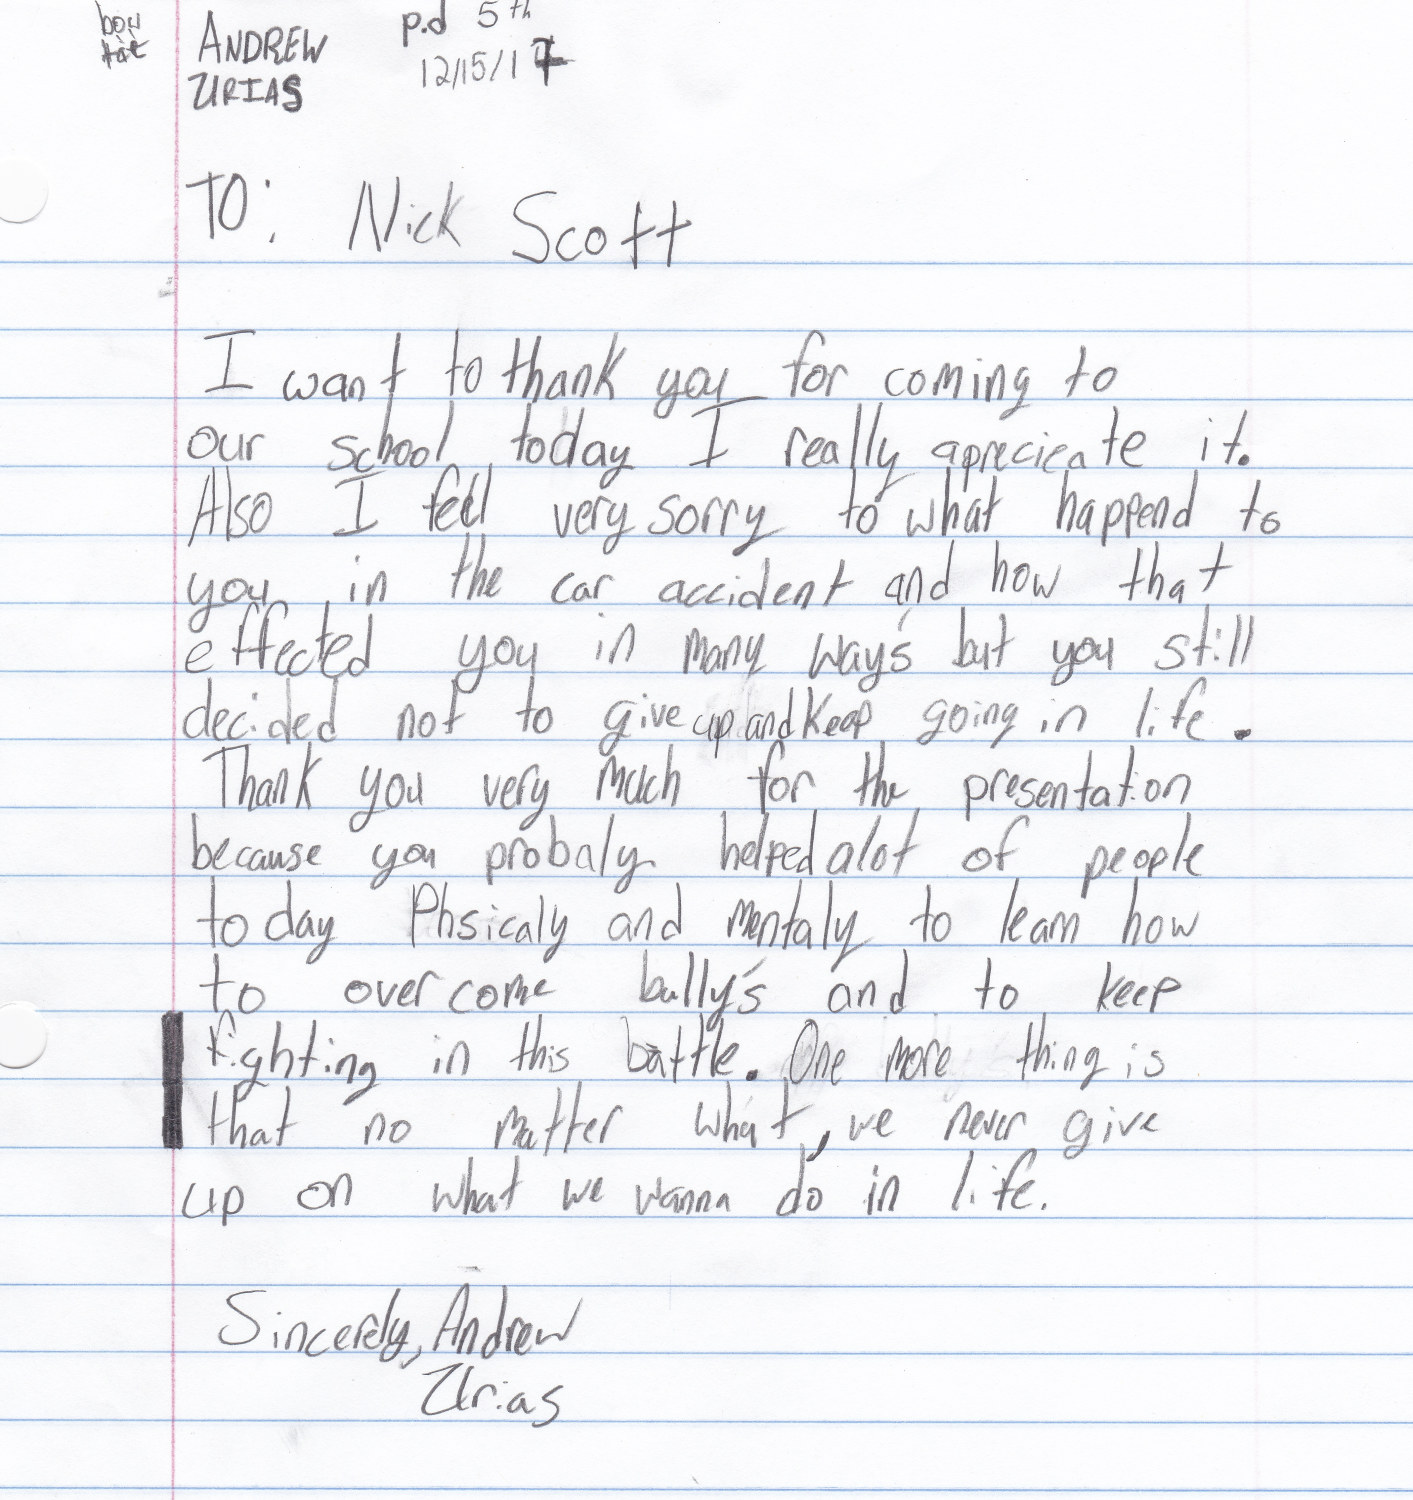 ANDREW p.d 5th
URIAS 12/15/17
TO: Nick Scott
I want to thank you for coming to
our school today I really aprecicate it.
Also I feel very sorry to what happend to
you in the car accident and how that
effected you in many way's but you still
decided not to give up and keep going in life.
Thank you very much for the presentation
because you probaly helped alot of people
today Phsicaly and mentaly to learn how
to over come bully's and to keep
fighting in this battle. One more thing is
that no matter what, we never give
up on what we wanna do in life.
Sincerely, Andrew
Urias